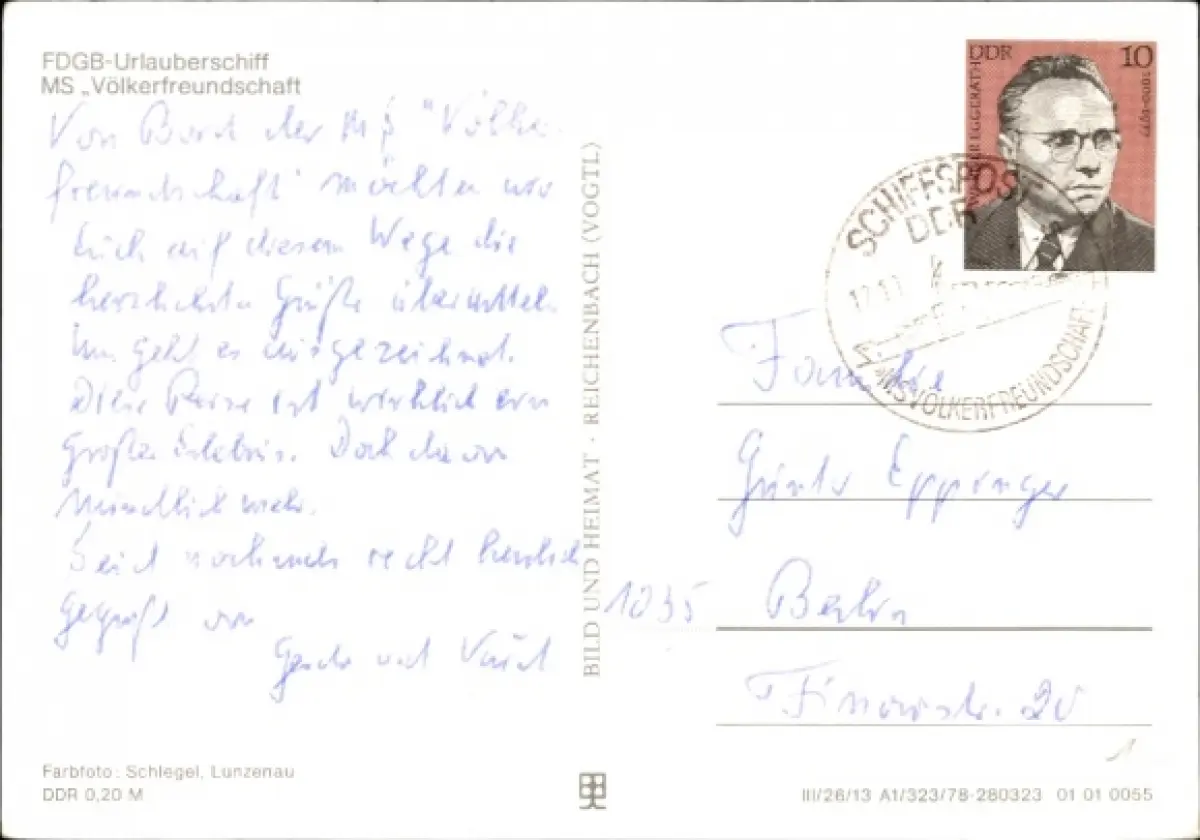 FDGB-Urlauberschiff
MS „Völkerfreundschaft
Von Bord der MS "Völker-
freundschaft" möchten wir
Euch auf diesem Wege die
herzlichsten Grüße übermitteln.
Uns geht es ausgezeichnet.
Diese Reise ist wirklich ein
großes Erlebnis. Doch davon
mündlich mehr.
Seid nochmals recht herzlich
gegrüßt von
und
BILD UND HEIMAT · REICHENBACH (VOGTL)
DDR 10
WALTER EGGERATH
1900-1977
SCHIFFSPOST
DDR
MS VÖLKERFREUNDSCHAFT
Familie
Günter Eppinger
1035 Berlin
Finowstr. 20
1
Farbfoto: Schlegel, Lunzenau
DDR 0,20 M
III/26/13 A1/323/78-280323 01 01 0055